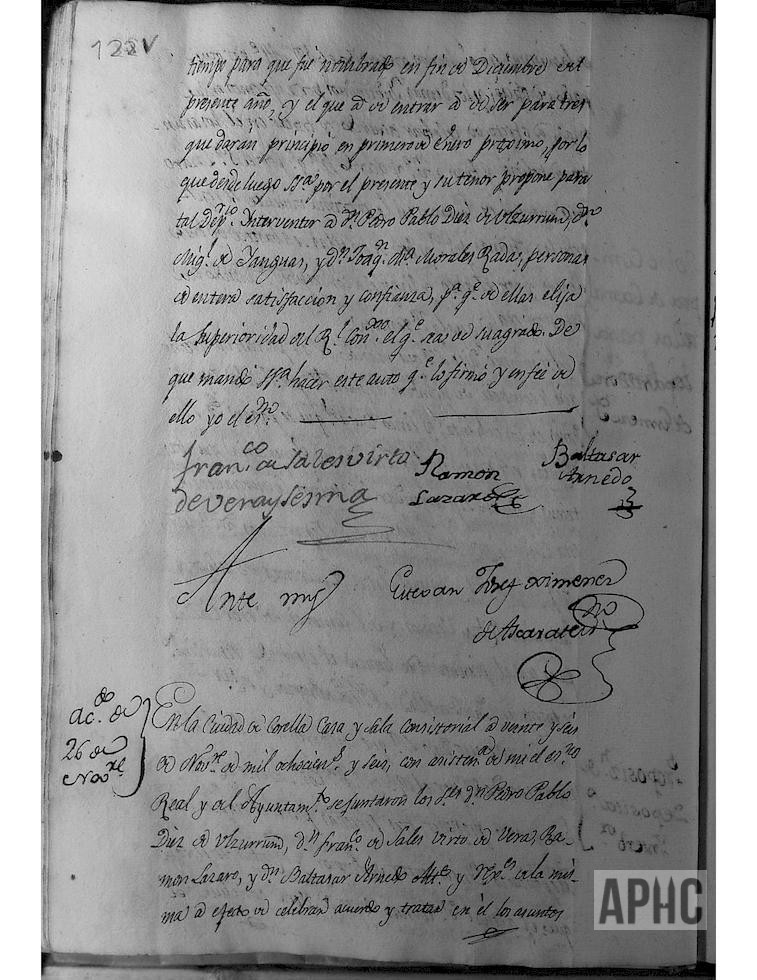 122V
tiempo para que fue nombrado en fin de Diciembre del
presente año, y el que a de entrar a de ser para tres
que daran principio en primero de Enero proximo, por lo
que desde luego SSª por el presente y su tenor propone para
tal Depºrio Interventor a Dn Pedro Pablo Diez de Ulzurrun, Dn
Migl. de Yanguas, y dn Joaqn. Mª Morales Rada, personas
de entera satisfaccion y confianza, pª qe de ellas elija
la Superioridad del Rl Conxo. el qe sea de su agrado. De
que mandó Sª hacer este auto qe lo firmó y en feé de
ello yo el esno.
Franco de Salesvirto
de Veraysesma
Ramon
Lazaro
Baltasar
Arnedo
Ante mi
Estevan Josef Ximenez
de Ascarate
no
Acdo. de
26 de
Novre
En la Ciudad de Corella Casa y Sala consistorial a veinte y seis
de Novre de mil ochocients y seis, con asistena de mi el esno
Real y del Ayuntamto se juntaron los Sres dn Pedro Pablo
Diez de Ulzurrun, dn Franco de Sales Virto de Vera, Ra-
mon Lazaro, y dn Baltasar Arnedo Altes y Rexres de la mis-
ma a efecto de celebrar acuerdo y tratar en él los asuntos
APHC